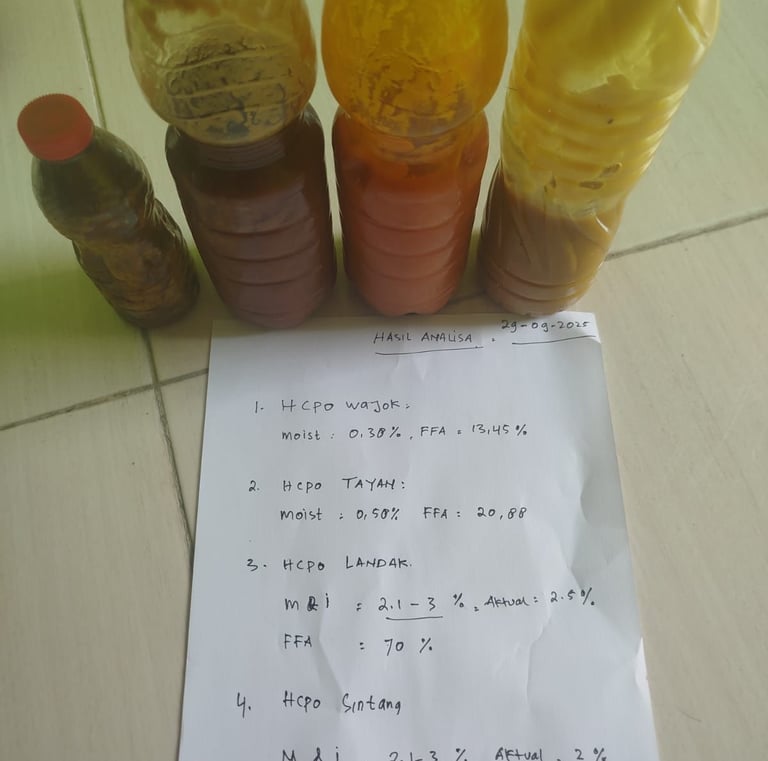 HASIL ANALISA : 29-09-2025
1. HCPO Wajok:
moist : 0,38%, FFA = 13,45%
2. HCPO TAYAN:
moist : 0,50% FFA : 20,88
3. HCPO LANDAK.
M & i = 2.1 - 3 %, Aktual = 2.5%
FFA : 70 %
4. HCPO Sintang
M & i 2.1-3 % Aktual . 2 %